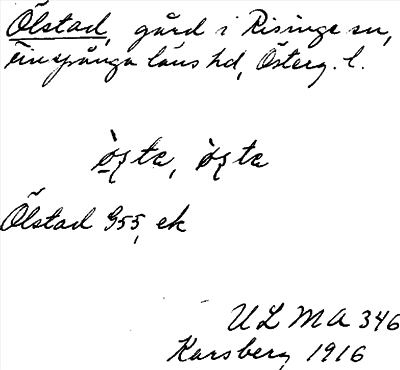 Ölstad, gård i Risinge sn,
Finspånga läns hd, Österg. l.
Ölstad G55, ek
ULMA 346
Karsberg 1916